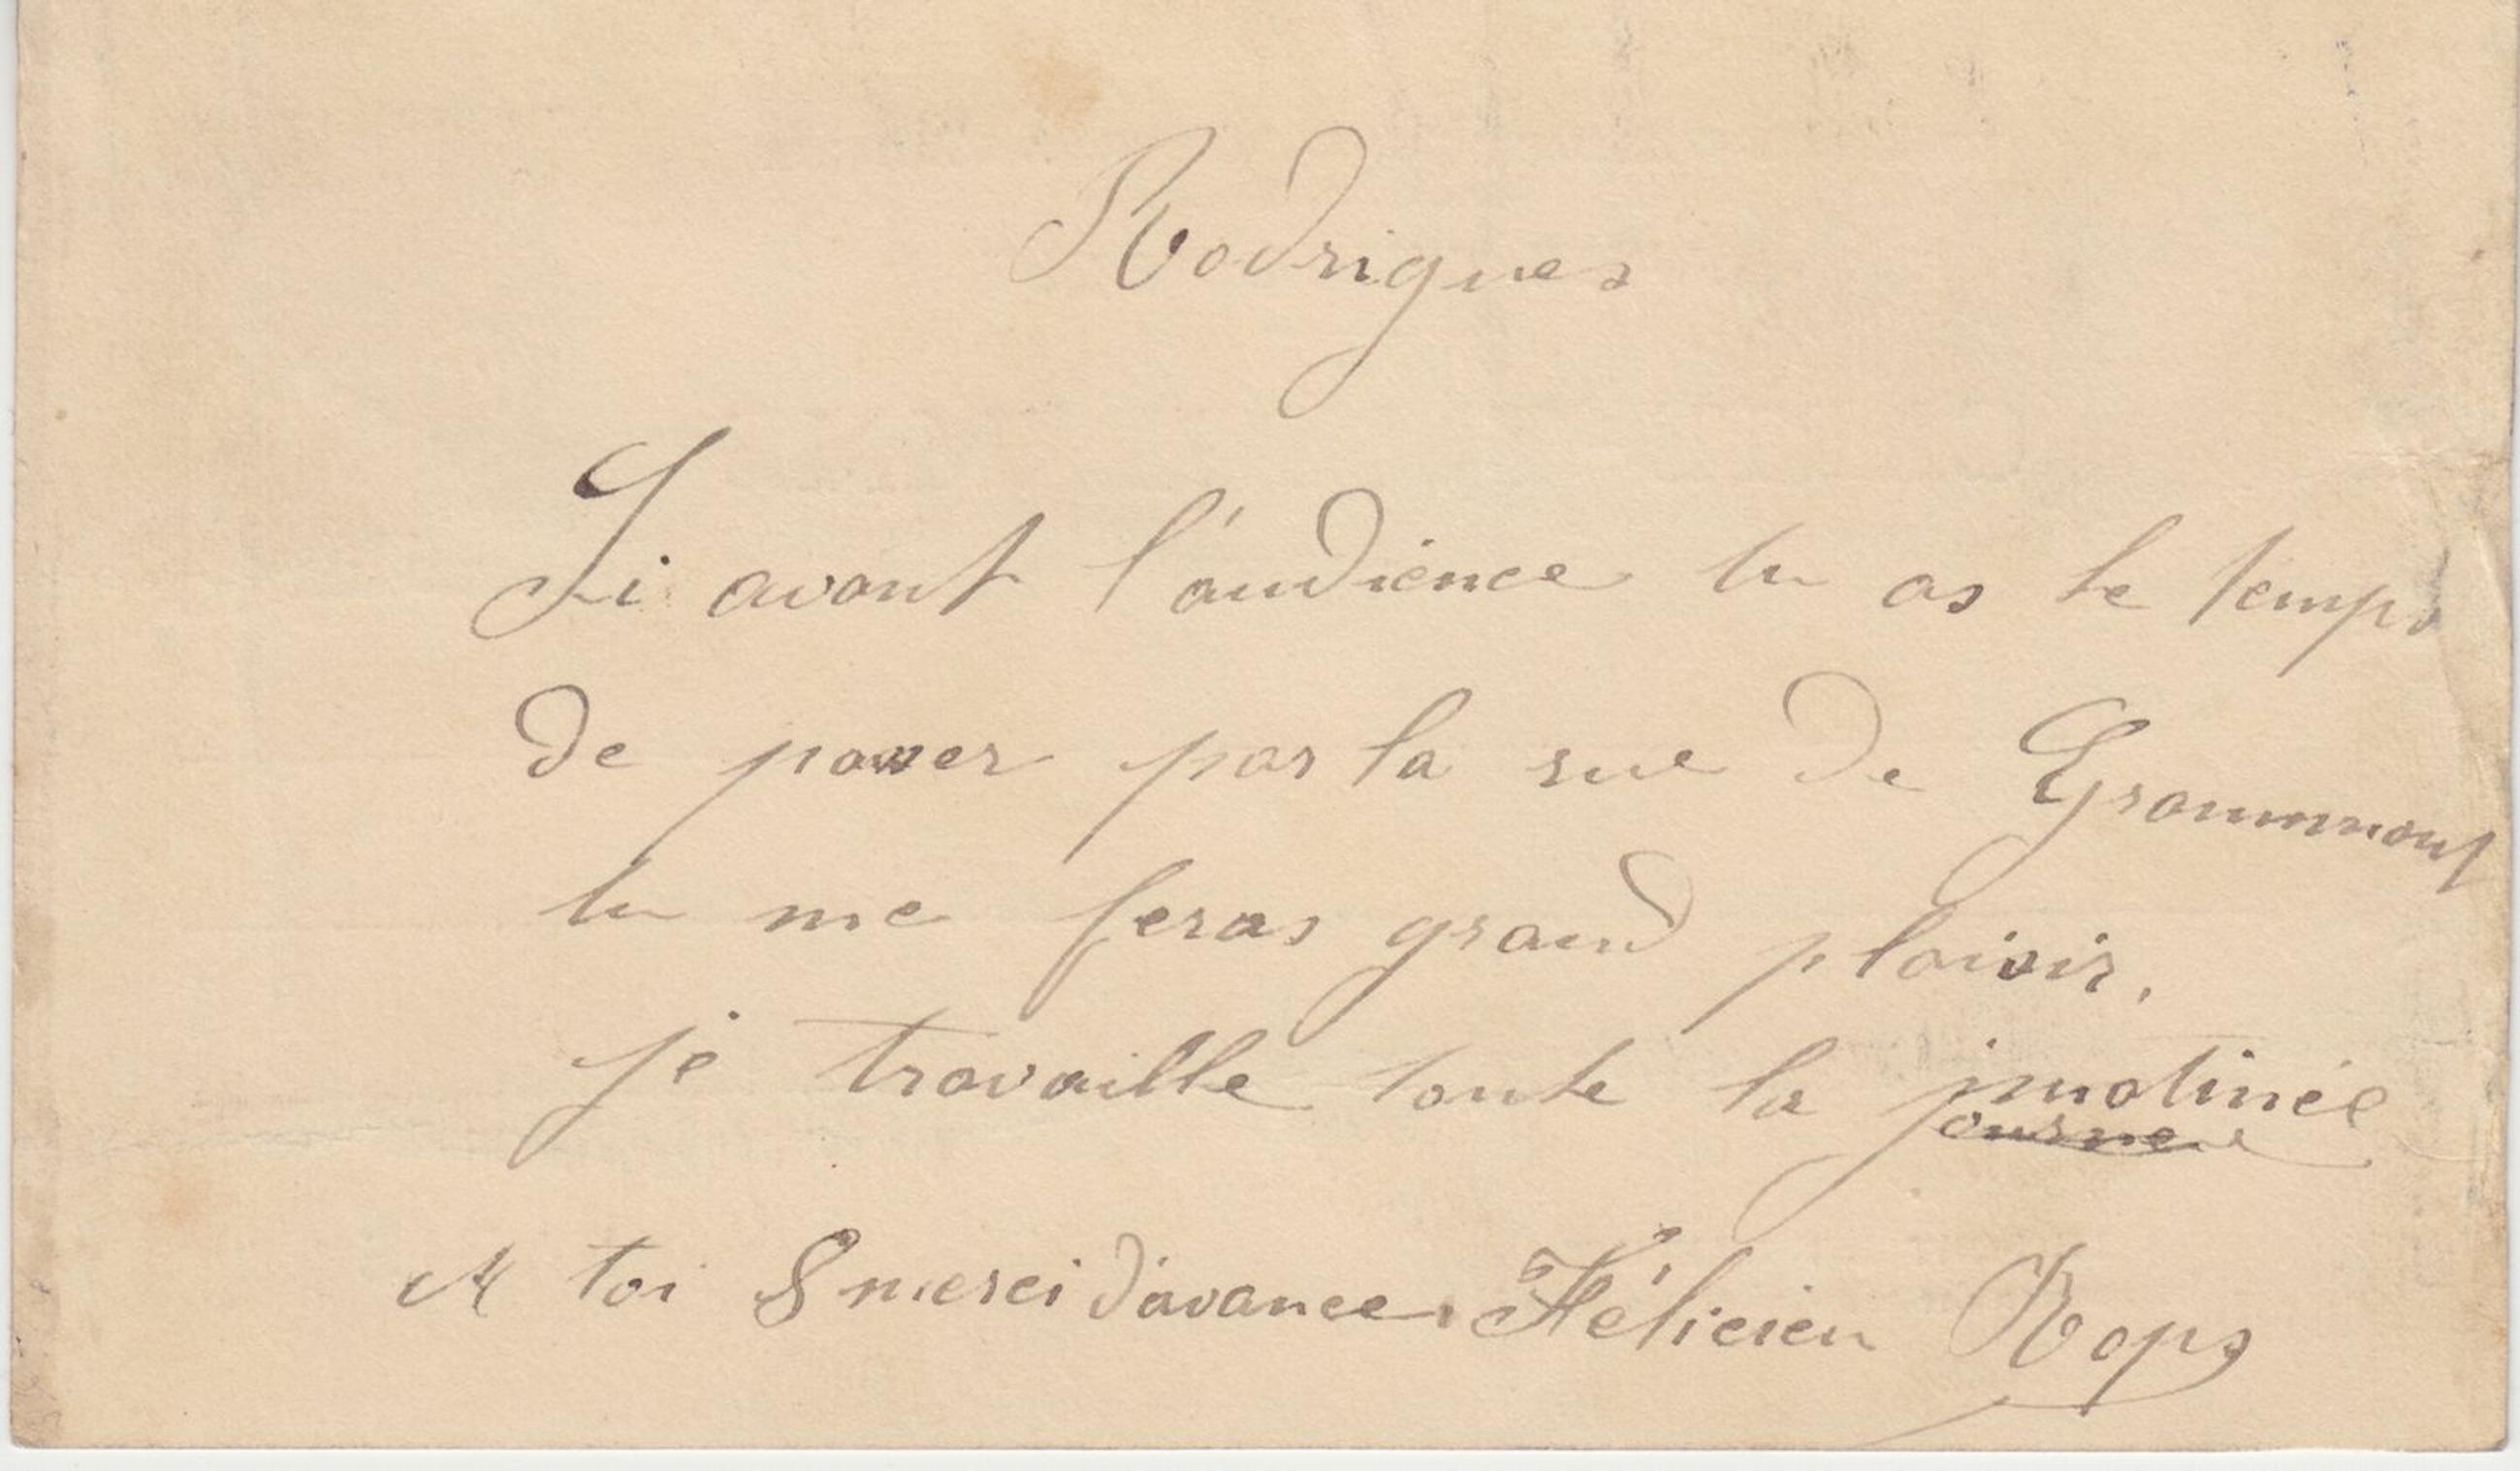 Rodrigues
Si avant l'audience tu as le temps
de passer par la rue de Grammont
tu me feras grand plaisir,
je travaille toute la matinée
journée
A toi & merci d'avance. Félicien Rops